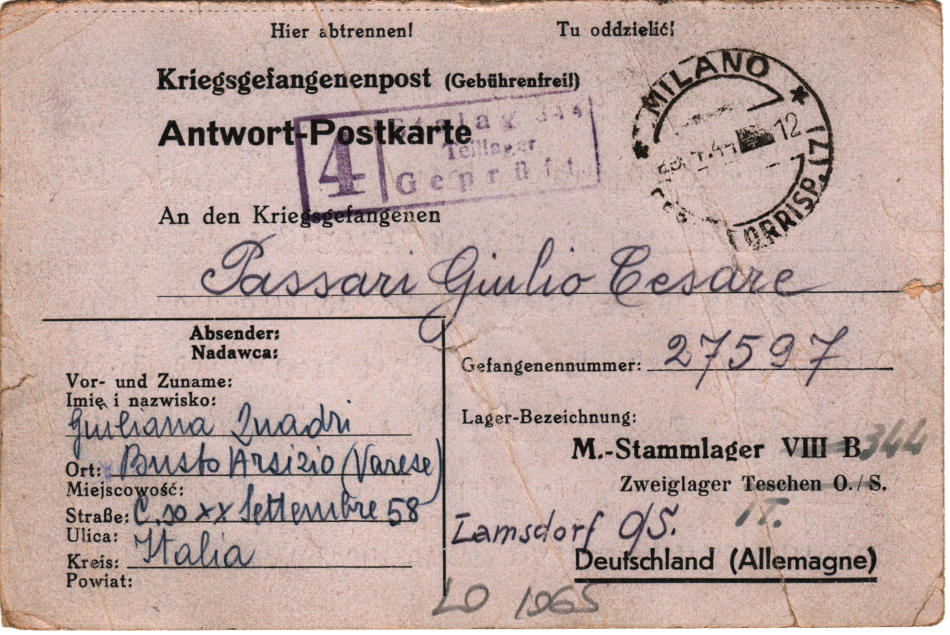 Hier abtrennen! Tu oddzielić!
Kriegsgefangenenpost (Gebührenfrei!)
Antwort-Postkarte
4
Stalag 344
Teillager
Geprüft
MILANO
12
CORRISP. (7)
An den Kriegsgefangenen
Passari Giulio Cesare
Absender:
Nadawca:
Vor- und Zuname:
Imię i nazwisko:
Giuliana Quadri
Ort: Busto Arsizio (Varese)
Miejscowość:
Straße: C.so XX Settembre 58
Ulica:
Italia
Kreis:
Powiat:
Gefangenennummer: 27597
Lager-Bezeichnung:
M.-Stammlager VIII B 344
Zweiglager Teschen O./S.
Lamsdorf O/S.
Deutschland (Allemagne)
LO 1065